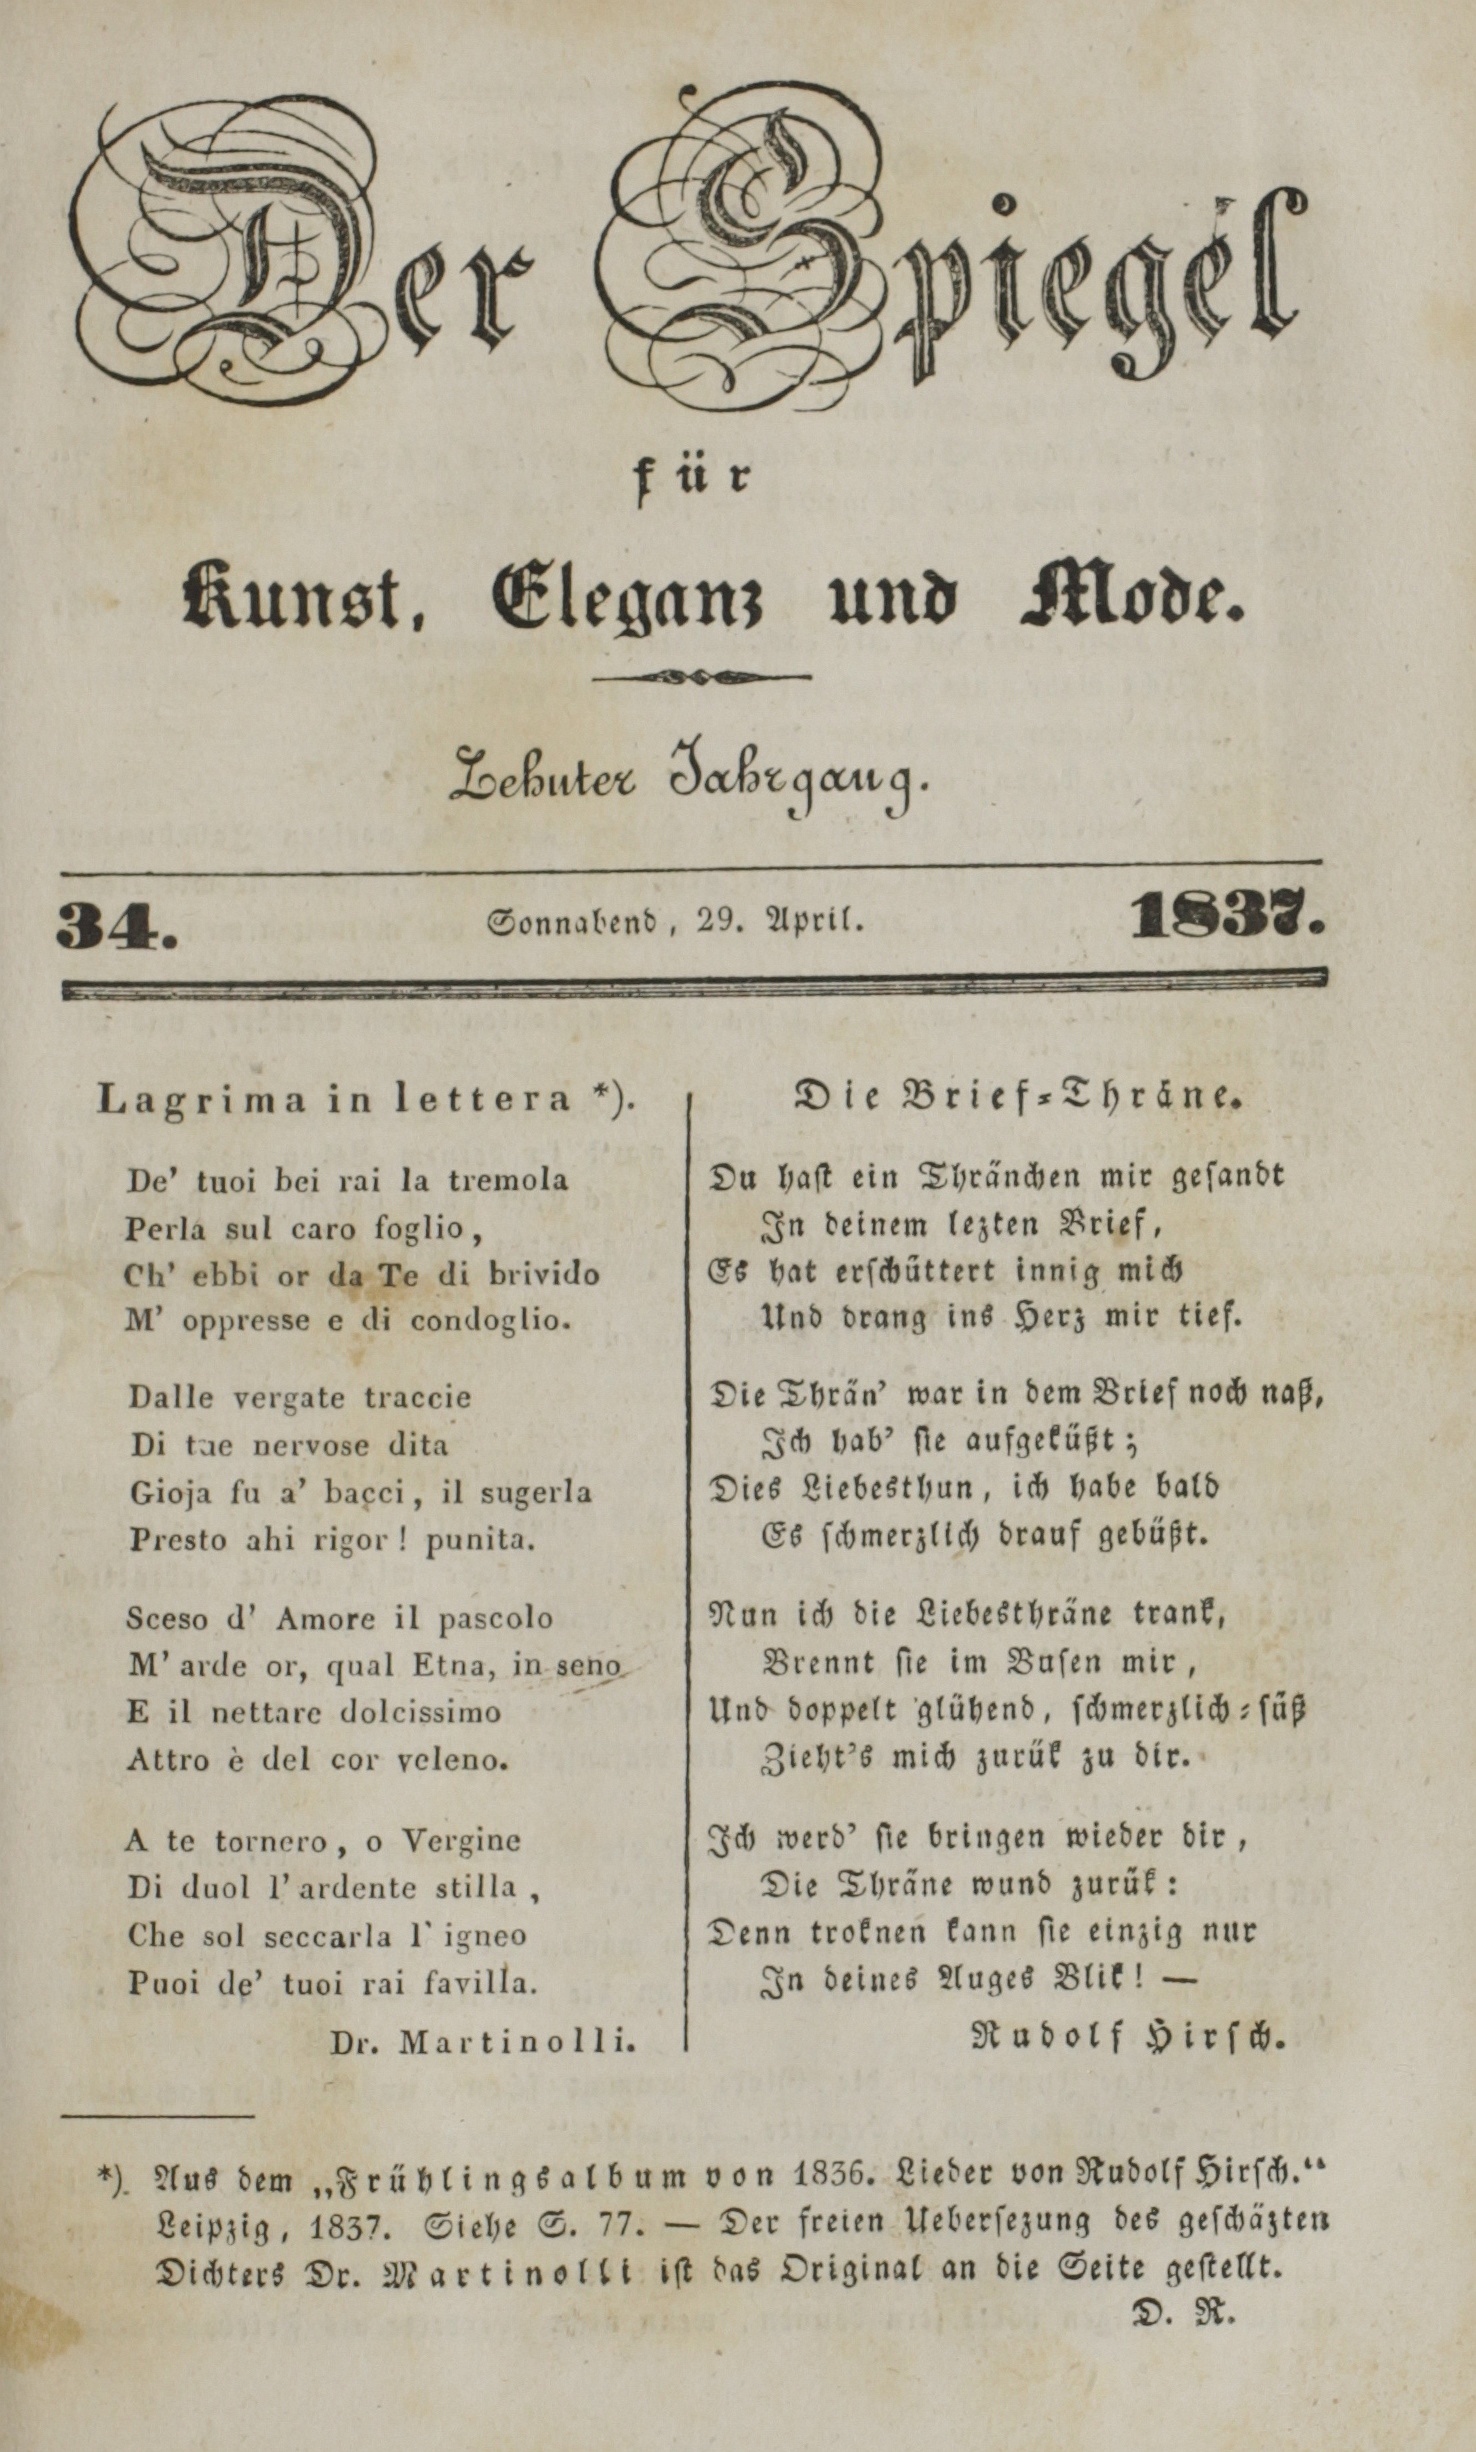 Der Spiegel
für
Kunst, Eleganz und Mode.
Zehnter Jahrgang.
34. Sonnabend, 29. April. 1837.
Lagrima in lettera *).
De' tuoi bei rai la tremola
Perla sul caro foglio,
Ch' ebbi or da Te di brivido
M' oppresse e di condoglio.
Dalle vergate traccie
Di tue nervose dita
Gioja fu a' bacci, il sugerla
Presto ahi rigor! punita.
Sceso d' Amore il pascolo
M' arde or, qual Etna, in seno
E il nettare dolcissimo
Attro è del cor veleno.
A te tornero, o Vergine
Di duol l' ardente stilla,
Che sol seccarla l' igneo
Puoi de' tuoi rai favilla.
Dr. Martinolli.
Die Brief-Thräne.
Du hast ein Thränchen mir gesandt
In deinem lezten Brief,
Es hat erschüttert innig mich
Und drang ins Herz mir tief.
Die Thrän' war in dem Brief noch naß,
Ich hab' sie aufgeküßt;
Dies Liebesthun, ich habe bald
Es schmerzlich drauf gebüßt.
Nun ich die Liebesthräne trank,
Brennt sie im Busen mir,
Und doppelt glühend, schmerzlich-süß
Zieht's mich zurük zu dir.
Ich werd' sie bringen wieder dir,
Die Thräne wund zurük:
Denn troknen kann sie einzig nur
In deines Auges Blik! —
Rudolf Hirsch.
*). Aus dem „Frühlingsalbum von 1836. Lieder von Rudolf Hirsch.“
Leipzig, 1837. Siehe S. 77. — Der freien Uebersezung des geschäzten
Dichters Dr. Martinolli ist das Original an die Seite gestellt.
D. R.